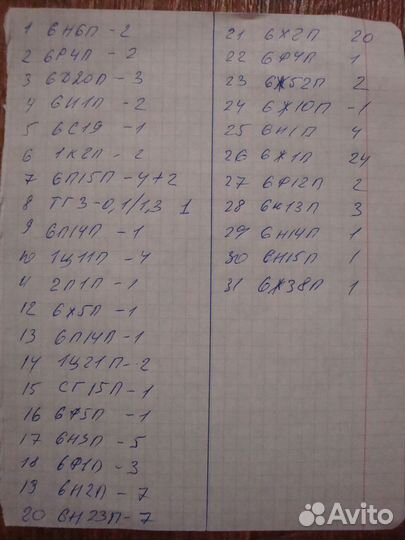 1 6Н6П - 2
2 6Р4П - 2
3 6Э20П - 3
4 6И1П - 2
5 6С19 - 1
6 1К2П - 2
7 6П15П - 4+2
8 ТГ3-0,1/1,3 1
9 6П14П - 1
10 1Ц11П - 4
11 2П1П - 1
12 6Х5П - 1
13 6П14П - 1
14 1Ц21П - 2
15 СГ15П - 1
16 6Ф5П - 1
17 6Н3П - 5
18 6Ф1П - 3
19 6Н2П - 7
20 6Н23П - 7
21 6Х2П 20
22 6Ф4П 1
23 6Ж52П 2
24 6Ж10П - 1
25 6Н1П 4
26 6Ж1П 24
27 6Ф12П 2
28 6К13П 3
29 6Н14П 1
30 6Н15П 1
31 6Ж38П 1
Avito